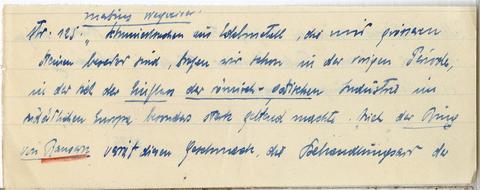 Nr. 125. „ Schmucksachen aus Edelmetall, die mit grösseren
Steinen besetzt sind, tragen wir schon in der vorigen Periode,
in der sich der Einfluss der römisch-gotischen Industrie im
südöstlichen Europa besonders stark geltend machte. Auch der Ring
von verrät diesen Geschmack, der Behandlungsart der